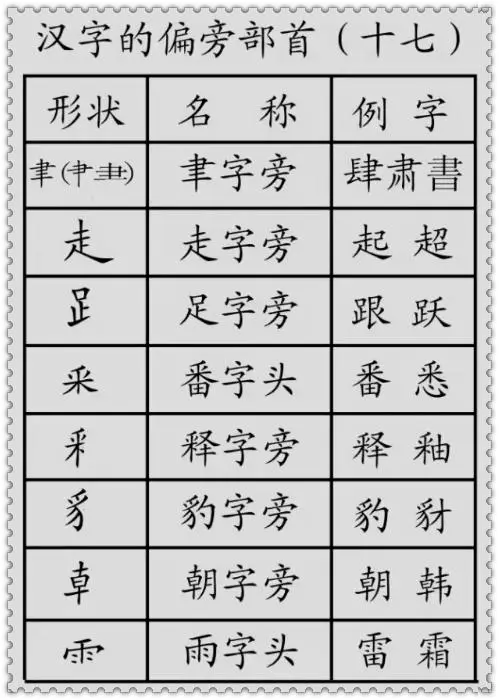 汉字的偏旁部首（十七）
形状 名称 例字
聿（肀⺻） 聿字旁 肆肃書
走 走字旁 起超
𧾷 足字旁 跟跃
釆 番字头 番悉
釆 释字旁 释釉
豸 豹字旁 豹豺
𠦝 朝字旁 朝韩
⻗ 雨字头 雷霜